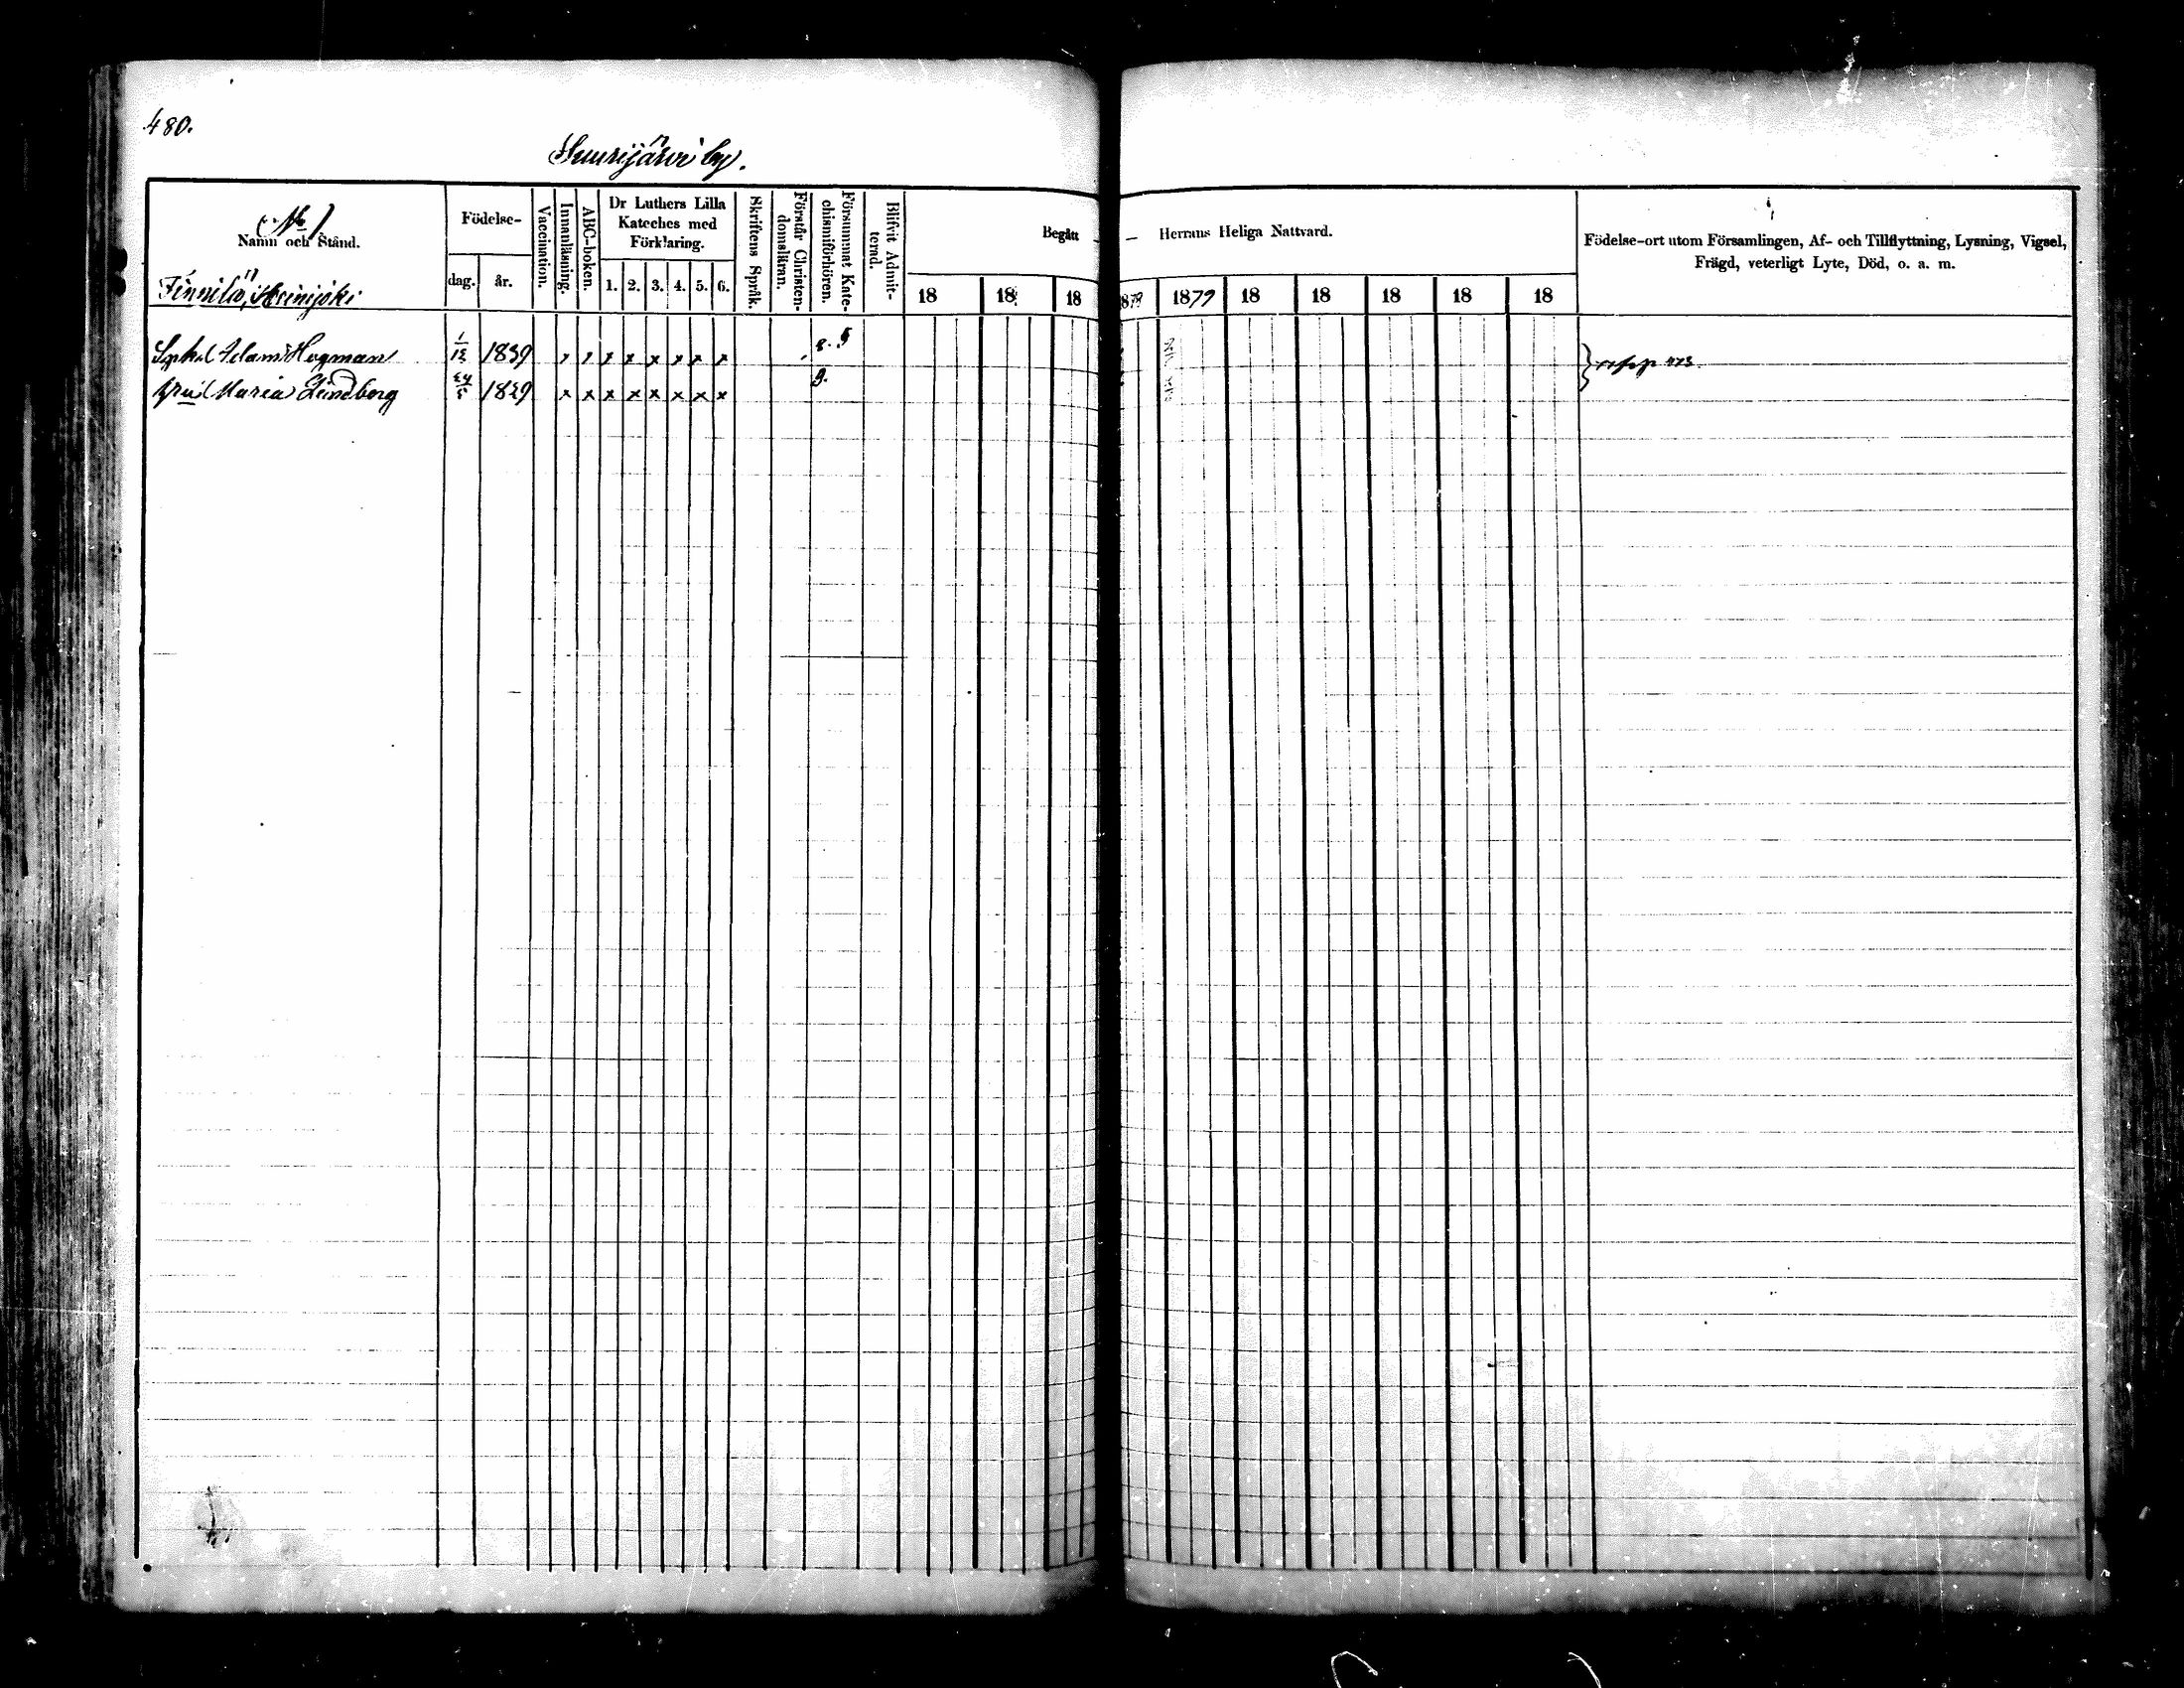 480.
Suurijärvi by.
No 1
Namn och Stånd.
Födelse-
dag.
år.
Vaccination.
Innanläsning.
ABC-boken.
Dr Luthers Lilla
Kateches med
Förklaring.
1. 2. 3. 4. 5. 6.
Skriftens Språk.
Förstår Christen-
domsläran.
Försummat Kate-
chismiförhören.
Blifvit Admit-
terad.
Begått — Herrans Heliga Nattvard.
18 18 18 1878 1879 18 18 18 18 18
Födelse-ort utom Församlingen, Af- och Tillflyttning, Lysning, Vigsel,
Frägd, veterligt Lyte, Död, o. a. m.
Finnilä, Heinijoki
Adam Hogman 1/12 1839 x x x x x x x x
Maria Lindberg 24/5 1829 x x x x x x x x
473.